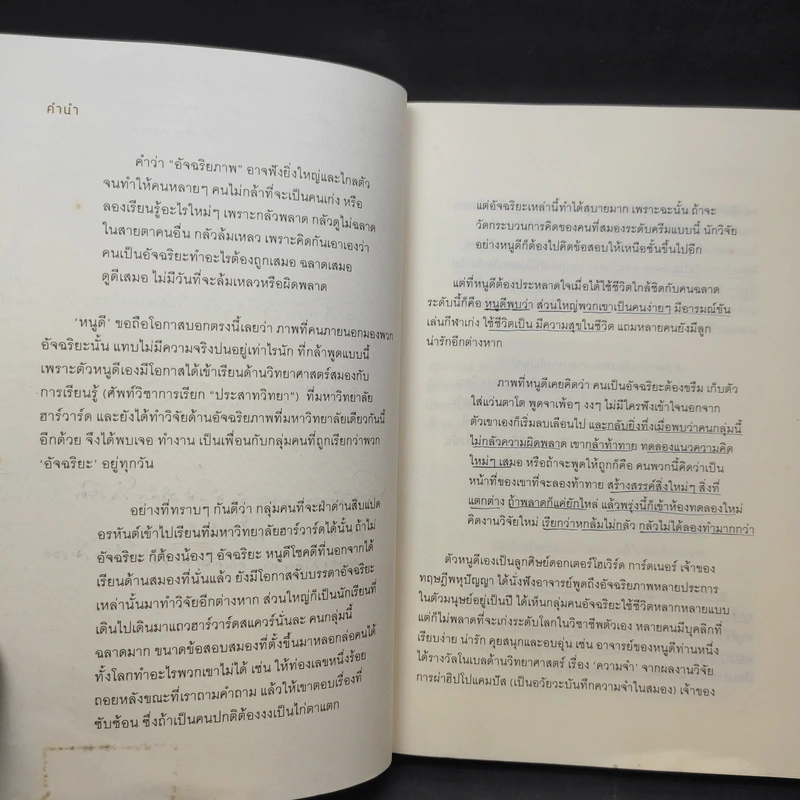 คำนำ
คำว่า "อัจฉริยภาพ" อาจฟังยิ่งใหญ่และไกลตัว
จนทำให้คนหลายๆ คนไม่กล้าที่จะเป็นคนเก่ง หรือ
ลองเรียนรู้อะไรใหม่ๆ เพราะกลัวพลาด กลัวดูไม่ฉลาด
ในสายตาคนอื่น กลัวล้มเหลว เพราะคิดกันเอาเองว่า
คนเป็นอัจฉริยะทำอะไรต้องถูกเสมอ ฉลาดเสมอ
ดูดีเสมอ ไม่มีวันที่จะล้มเหลวหรือผิดพลาด
'หนูดี' ขอถือโอกาสบอกตรงนี้เลยว่า ภาพที่คนภายนอกมองพวก
อัจฉริยะนั้น แทบไม่มีความจริงปนอยู่เท่าไรนัก ที่กล้าพูดแบบนี้
เพราะตัวหนูดีเองมีโอกาสได้เข้าเรียนด้านวิทยาศาสตร์สมองกับ
การเรียนรู้ (ศัพท์วิชาการเรียก "ประสาทวิทยา") ที่มหาวิทยาลัย
ฮาร์วาร์ด และยังได้ทำวิจัยด้านอัจฉริยภาพที่มหาวิทยาลัยเดียวกันนี้
อีกด้วย จึงได้พบเจอ ทำงาน เป็นเพื่อนกับกลุ่มคนที่ถูกเรียกว่าพวก
'อัจฉริยะ' อยู่ทุกวัน
อย่างที่ทราบๆ กันดีว่า กลุ่มคนที่จะฝ่าด่านสิบแปด
อรหันต์เข้าไปเรียนที่มหาวิทยาลัยฮาร์วาร์ดได้นั้น ถ้าไม่
อัจฉริยะ ก็ต้องน้องๆ อัจฉริยะ หนูดีโชคดีที่นอกจากได้
เรียนด้านสมองที่นั่นแล้ว ยังมีโอกาสจับบรรดาอัจฉริยะ
เหล่านั้นมาทำวิจัยอีกต่างหาก ส่วนใหญ่ก็เป็นนักเรียนที่
เดินไปเดินมาแถวฮาร์วาร์ดสแควร์นั่นละ คนกลุ่มนี้
ฉลาดมาก ขนาดข้อสอบสมองที่ตั้งขึ้นมาหลอกล่อคนได้
ทั้งโลกทำอะไรพวกเขาไม่ได้ เช่น ให้ท่องเลขหนึ่งร้อย
ถอยหลังขณะที่เราถามคำถาม แล้วให้เขาตอบเรื่องที่
ซับซ้อน ซึ่งถ้าเป็นคนปกติต้องงงเป็นไก่ตาแตก
แต่อัจฉริยะเหล่านี้ทำได้สบายมาก เพราะฉะนั้น ถ้าจะ
วัดกระบวนการคิดของคนที่สมองระดับครีมแบบนี้ นักวิจัย
อย่างหนูดีก็ต้องไปคิดข้อสอบให้เหนือชั้นขึ้นไปอีก
แต่ที่หนูดีต้องประหลาดใจเมื่อได้ใช้ชีวิตใกล้ชิดกับคนฉลาด
ระดับนี้ก็คือ หนูดีพบว่า ส่วนใหญ่พวกเขาเป็นคนง่ายๆ มีอารมณ์ขัน
เล่นกีฬาเก่ง ใช้ชีวิตเป็น มีความสุขในชีวิต แถมหลายคนยังมีลูก
น่ารักอีกต่างหาก
ภาพที่หนูดีเคยคิดว่า คนเป็นอัจฉริยะต้องขรึม เก็บตัว
ใส่แว่นตาโต พูดจาเพ้อๆ งงๆ ไม่มีใครฟังเข้าใจนอกจาก
ตัวเขาเองก็เริ่มลบเลือนไป และกลับยิ่งทึ่งเมื่อพบว่าคนกลุ่มนี้
ไม่กลัวความผิดพลาด เขากล้าท้าทาย ทดลองแนวความคิด
ใหม่ๆ เสมอ หรือถ้าจะพูดให้ถูกก็คือ คนพวกนี้คิดว่าเป็น
หน้าที่ของเขาที่จะลองท้าทาย สร้างสรรค์สิ่งใหม่ๆ สิ่งที่
แตกต่าง ถ้าพลาดก็แค่ยักไหล่ แล้วพรุ่งนี้ก็เข้าห้องทดลองใหม่
คิดงานวิจัยใหม่ เรียกว่าหกล้มไม่กลัว กลัวไม่ได้ลองทำมากกว่า
ตัวหนูดีเองเป็นลูกศิษย์ดอกเตอร์โฮเวิร์ด การ์ดเนอร์ เจ้าของ
ทฤษฎีพหุปัญญา ได้นั่งฟังอาจารย์พูดถึงอัจฉริยภาพหลายประการ
ในตัวมนุษย์อยู่เป็นปี ได้เห็นกลุ่มคนอัจฉริยะใช้ชีวิตหลากหลายแบบ
แต่ก็ไม่พลาดที่จะเก่งระดับโลกในวิชาชีพตัวเอง หลายคนมีบุคลิกที่
เรียบง่าย น่ารัก คุยสนุกและอบอุ่น เช่น อาจารย์ของหนูดีท่านหนึ่ง
ได้รางวัลโนเบลด้านวิทยาศาสตร์ เรื่อง 'ความจำ' จากผลงานวิจัย
การผ่าฮิปโปแคมปัส (เป็นอวัยวะบันทึกความจำในสมอง) เจ้าของ